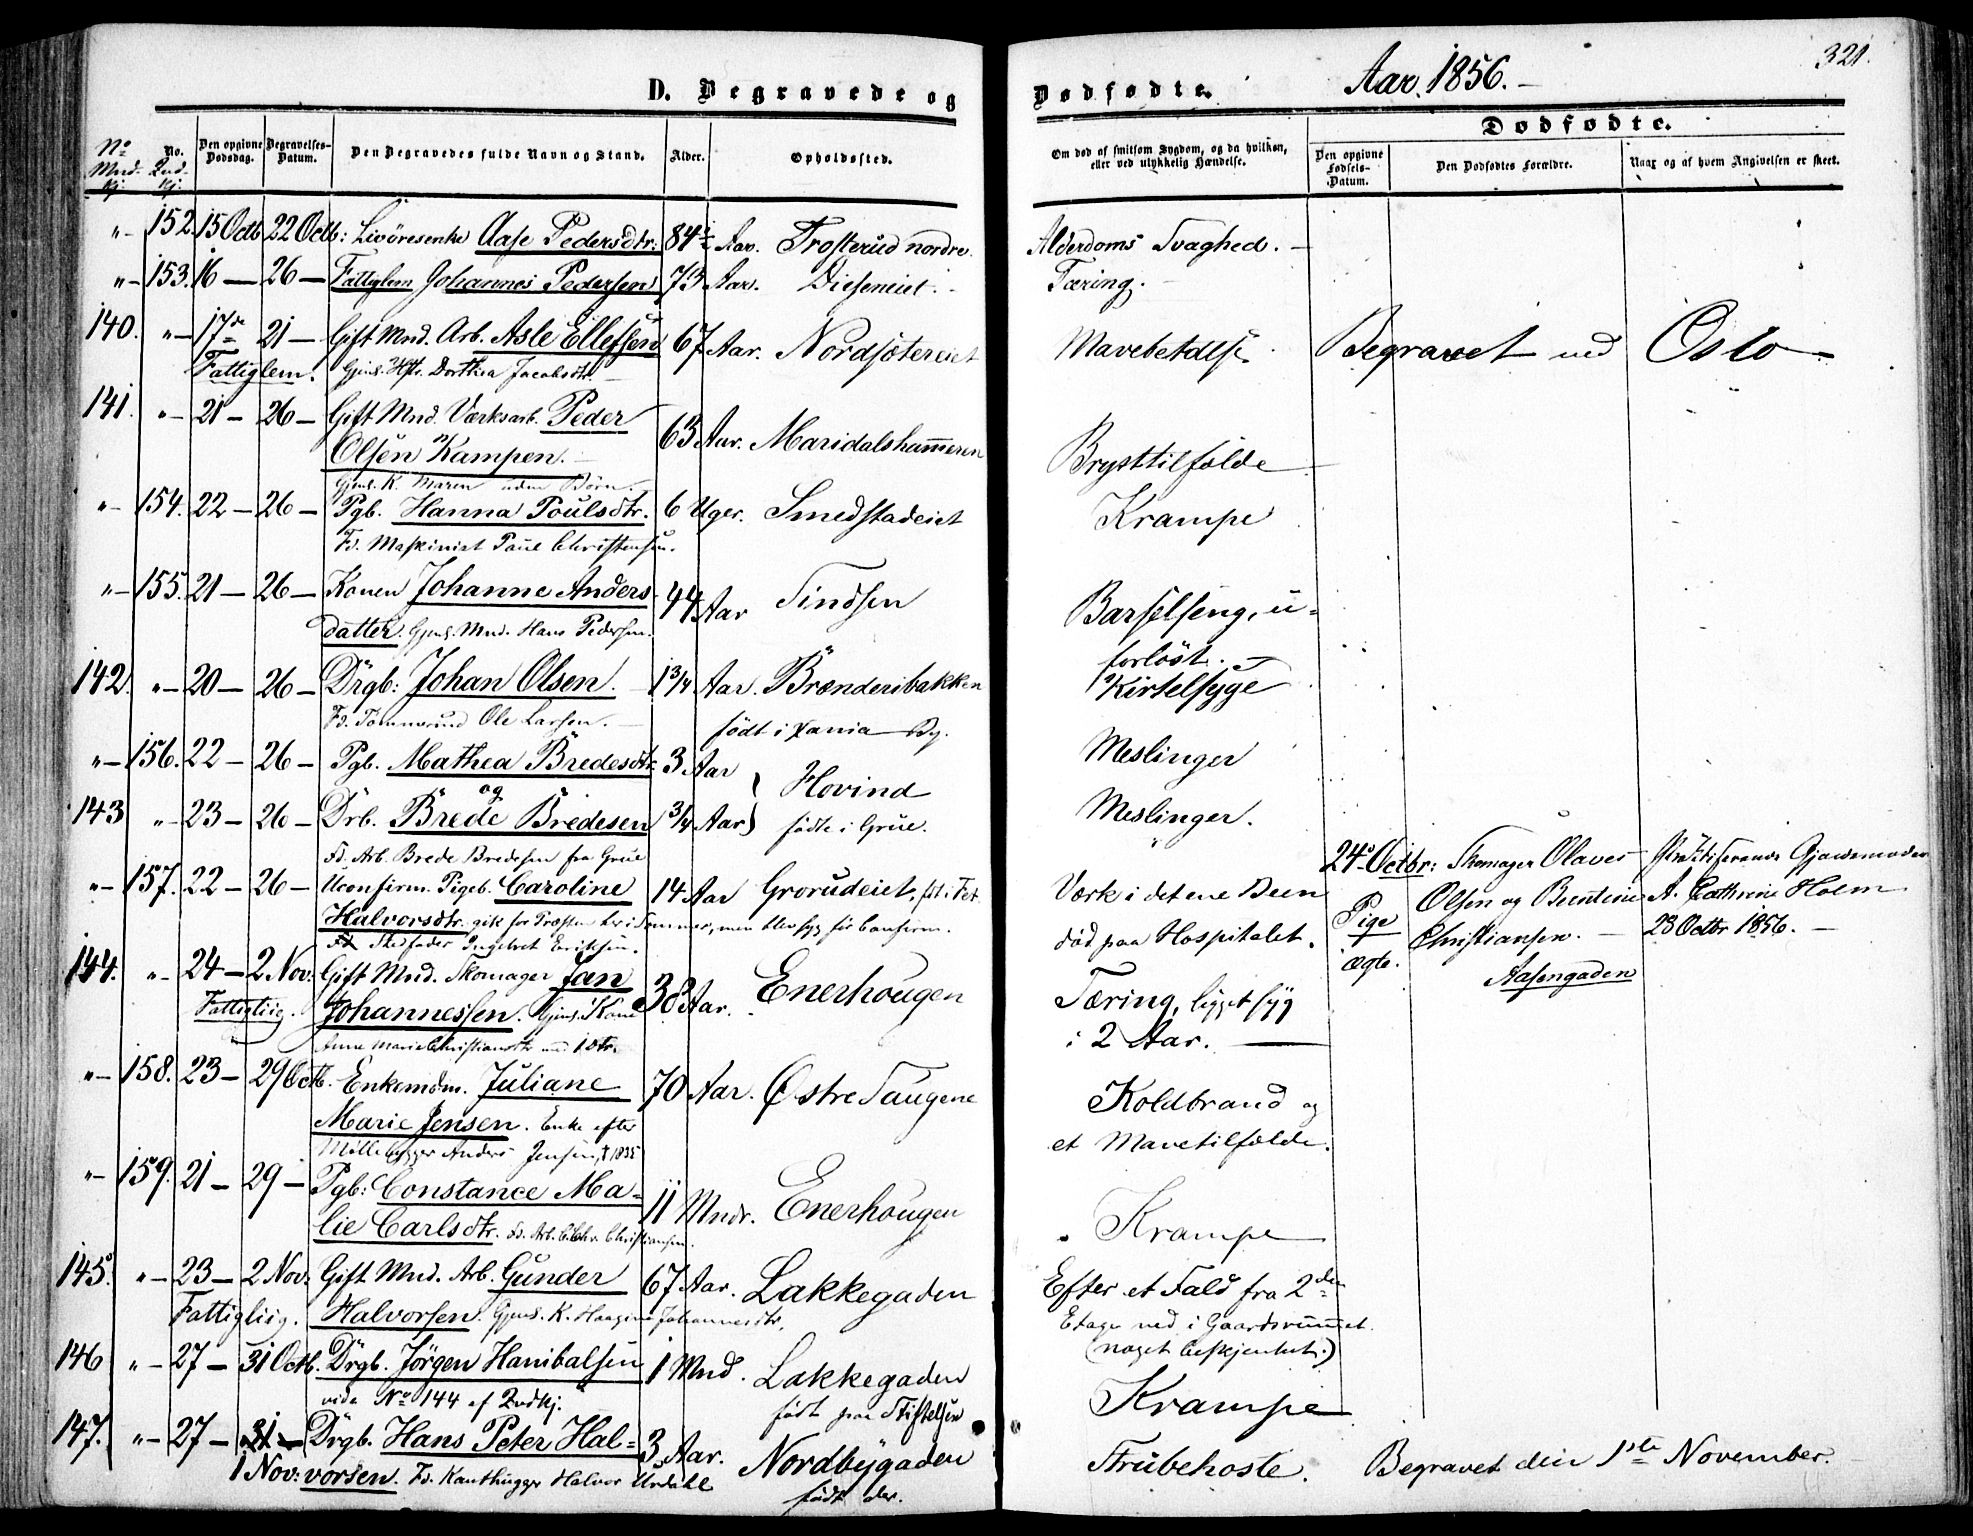 D. Begravede og
Dødfødte.
Aar 1856.
321.
No Mnd. Kj.
No. Qvd. Kj.
Den opgivne Dødsdag.
Begravelses-Datum.
Den Begravedes fulde Navn og Stand.
Alder.
Opholdssted.
Om død af smitsom Sygdom, og da hvilken, eller ved ulykkelig Hændelse.
Dødfødte.
Den opgivne Fødsels-Datum.
Den Dødfødtes Forældre.
Naar og af hvem Angivelsen er skeet.
"- 152. 15 Octb 22 Octb: Livöresenke Aase Pedersdtr: 84½ Aar. Trosterud nordre. Alderdoms Svaghed.
"- 153. 16 — 26 — Fattiglem Johannes Pedersen 73 Aar. Diseneiet. Tæring.
140. "- 17de 21 — Gift Mnd. Arb. Asle Ellefsen 67 Aar. Nordsjøtereiet Mavebetdlse. Begravet ved Oslo
Fattiglem. Gjenl. Dorthea Jacobsdtr.
141. "- 21 — 26 — Gift Mnd. Værksarb. Peder
Olsen Kampen. 63 Aar. Maridalshammeren Brysttilfælde
Gjenl. K. Maren uden Børn.
"- 154. 22 — 26 — Pgb. Hanna Poulsdtr. 6 Uger. Smedstadeiet Krampe
Fd. Maskinist Paul Christensen.
"- 155. 21 — 26 — Konen Johanne Anders
datter. Gjenl. Mnd. Hans Pedersen. 44 Aar Sindsen Barselseng, u-
forløst.
142. "- 20 — 26 — Drgb: Johan Olsen. 1¾ Aar. Brænderibakken Kirtelsyge
Fd. Tømmermd Ole Larsen. født i Xania By.
"- 156. 22 — 26 — Pgb. Mathea Bredesdtr 3 Aar Meslinger
og Hovind
143 "- 23 — 26 — Drb. Brede Bredesen ¾ Aar fødte i Grue. Meslinger.
Fd. Arb. Brede Bredesen fra Grue
"- 157. 22 — 26 — Uconfirm. Pigeb. Caroline 14 Aar Grorudeiet, fd. i Fet Værk i det ene Been
Halvorsdtr. gik for Præsten her i Sommer, men blev syg før Confirm. død paa Hospitalet.
Fd Stedfader Ingebret Eriksen.
24de Octbr: Skomager Olaves
Pige Olsen og Berntine
ægte. Christiansen.
Aasengaden
Gjordemoder
A. Cathrine Holm
28 Octbr 1856.
144. "- 24 — 2 Nov: Gift Mnd. Skomager Jan
Fattiglig. Johannessen. Gjenl. Kone 38 Aar. Enerhougen Tæring, ligget syg
Anne Marie Christiansdtr i 2 Aar.
"- 158. 23 — 29 Octb. Enkemdm. Juliane 70 Aar. Østre Taugene Koldbrand og
Marie Jensen. Enke efter et Mavetilfælde.
Møllebygger Anders Jensen, † 1835
"- 159. 21 — 29 — Pgb: Constance Ma-
lie Carlsdtr. Fd. Arb. C. Chr. Christiansen. 11 Mndr. Enerhougen Krampe
145. "- 23 — 2 Nov. Gift Mnd. Arb. Gunder 67 Aar. Lakkegaden Efter et Fald fra 2den
Fattiglig. Halvorsen. Gjenl. K. Haagine Johannesdtr. Etage ned i Gaardsrummet.
(noget beskjenket.)
146 "- 27 — 31 Octb. Drgb. Jörgen Hanibalsen 1 Mnd. Lakkegaden Krampe
vide No 144 af Qvdkj. født paa Stiftelsen
147. "- 27 — 31 — Drgb. Hans Peter Hal- 3 Aar. Nordbygaden Strubehoste. Begravet den 1ste November.
1 Nov: vorsen. Fd. Kanthugger Halvor Urdahl født der.